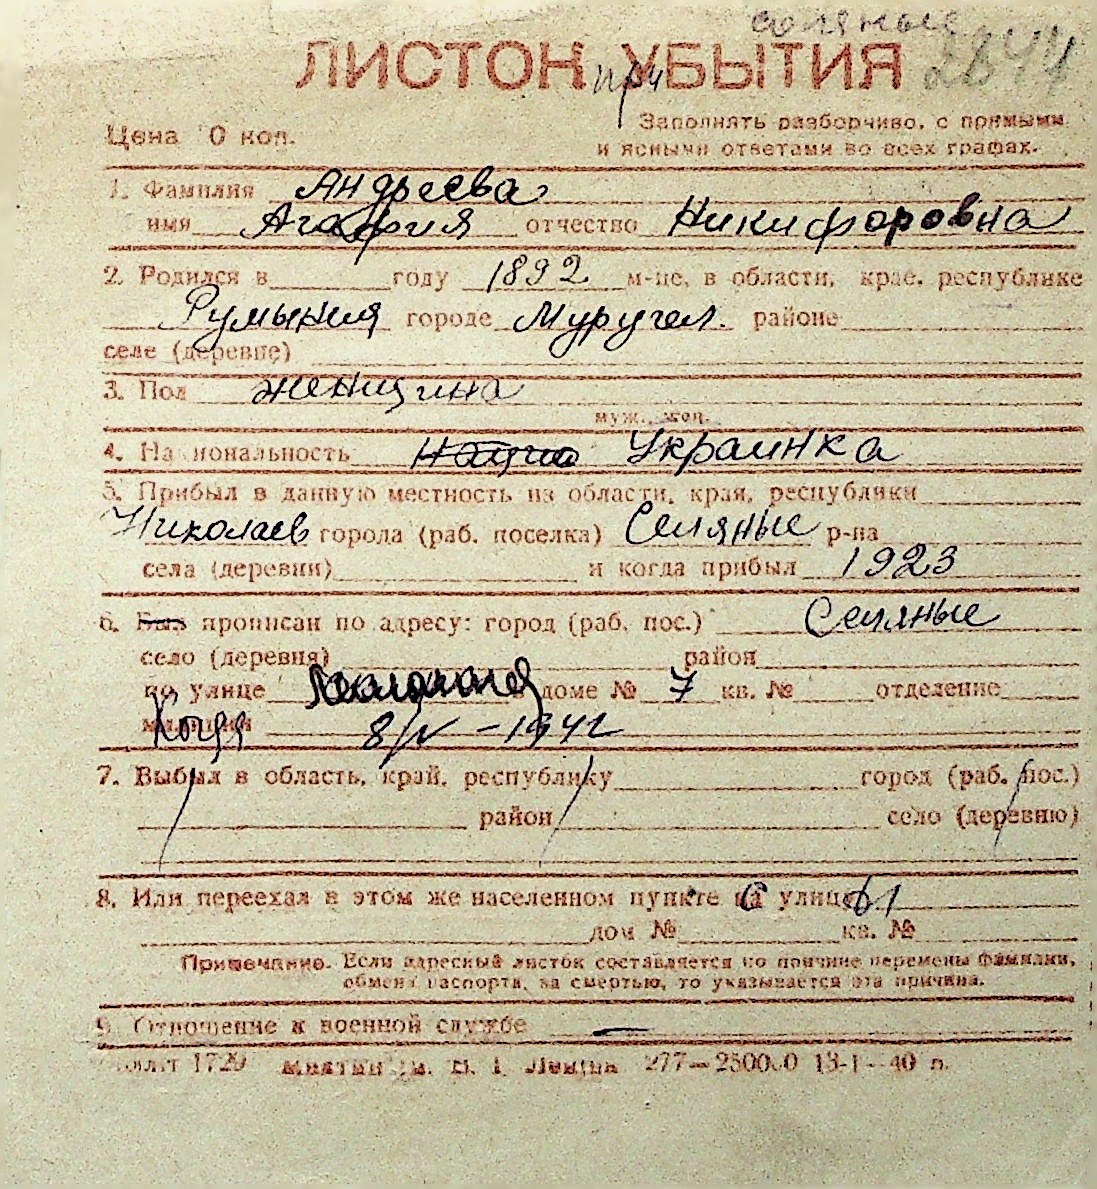 соляные
2844
ЛИСТОК при УБЫТИЯ
Цена 10 коп.
Заполнять разборчиво, с прямыми
и ясными ответами во всех графах.
1. Фамилия Андреева
имя Агафия отчество Никифоровна
2. Родился в году 1892 м-це, в области, крае, республике
Румыния городе Муругел. районе
селе (деревне)
3. Пол женщина
муж., жен.
4. Национальность Украинка
5. Прибыл в данную местность из области, края, республики
Николаев города (раб. поселка) Селяные р-на
села (деревни) и когда прибыл 1923
6. Был прописан по адресу: город (раб. пос.) Селяные
село (деревня) район
по улице доме № 7 кв. № отделение
милиции Когда 8/IV - 1942
7. Выбыл в область, край, республику город (раб. пос.)
район село (деревню)
8. Или переехал в этом же населенном пункте на улицу
дом № кв. №
Примечание. Если адресный листок составляется по причине перемены фамилии,
обмена паспорта, за смертью, то указывается эта причина.
9. Отношение к военной службе —
277—250000 13-1-40 г.